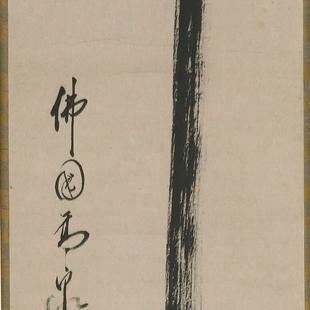 佛國高泉